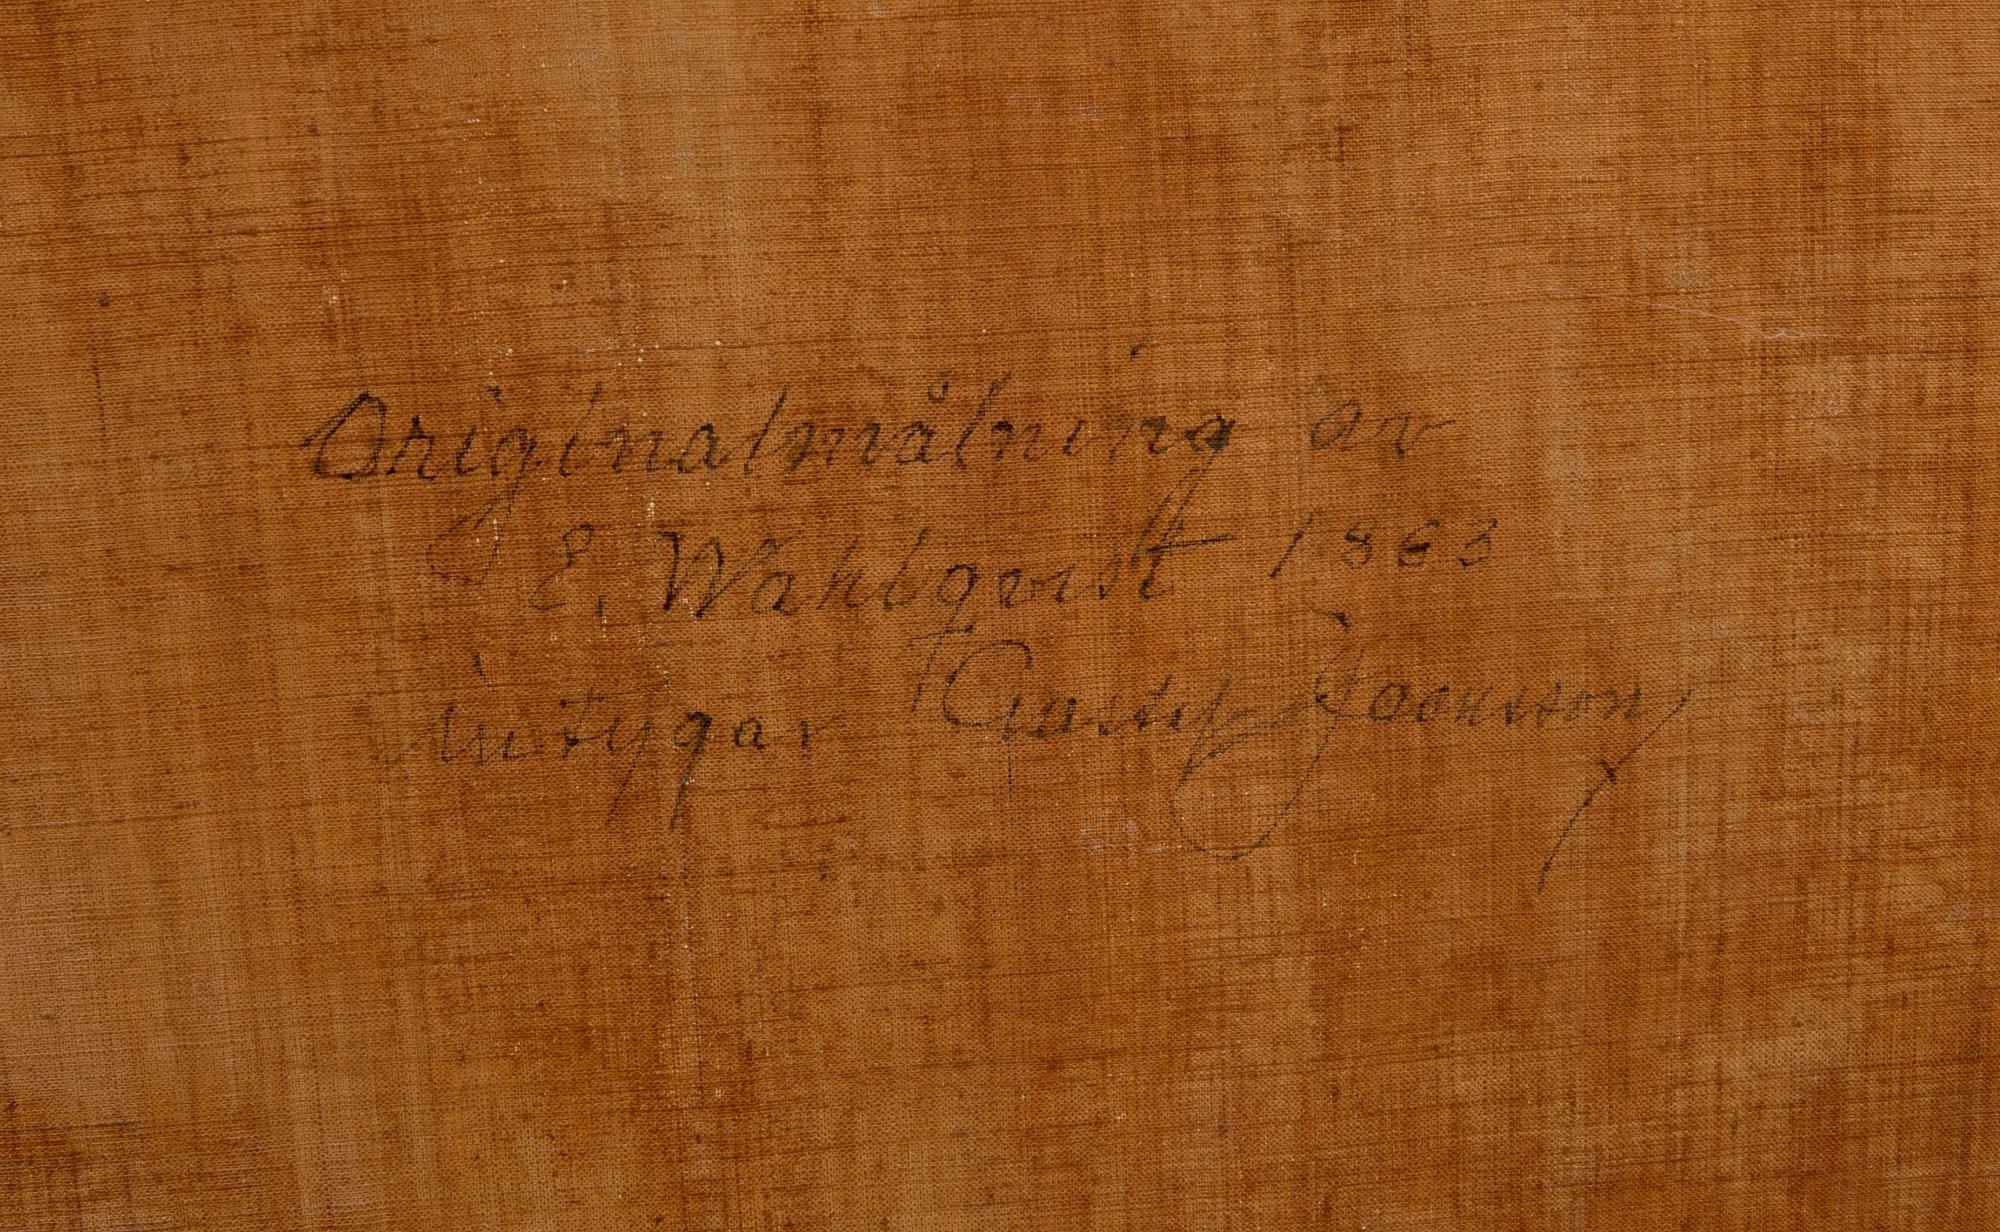 Originalmålning av
E. Wahlqvist 1863
intygar Gustaf